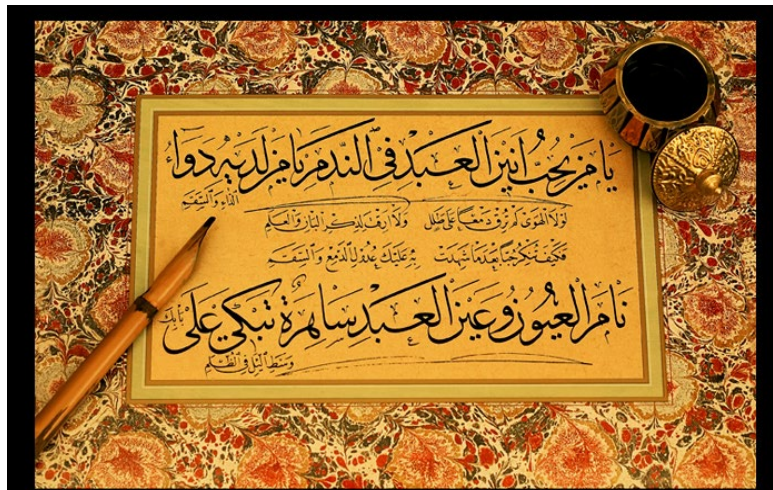 يَا مَنْ يُحِبُّ أَنِينَ الْعَبْدِ فِي النَّدَمِ يَا مَنْ لَدَيْهِ دَوَاءُ
الدَّاءِ وَالسَّقَمِ
لَوْلَا الْهَوَى لَمْ تُرِقْ دَمْعًا عَلَى طَلَلٍ وَلَا أَرِقْتَ لِذِكْرِ الْبَانِ وَالْعَلَمِ
فَكَيْفَ تُنْكِرُ حُبًّا بَعْدَ مَا شَهِدَتْ بِهِ عَلَيْكَ عُدُولُ الدَّمْعِ وَالسَّقَمِ
نَامَ الْعُيُونُ وَعَيْنُ الْعَبْدِ سَاهِرَةٌ تَبْكِي عَلَى بَابِكَ
وَسَطَ اللَّيْلِ فِي الظُّلَمِ